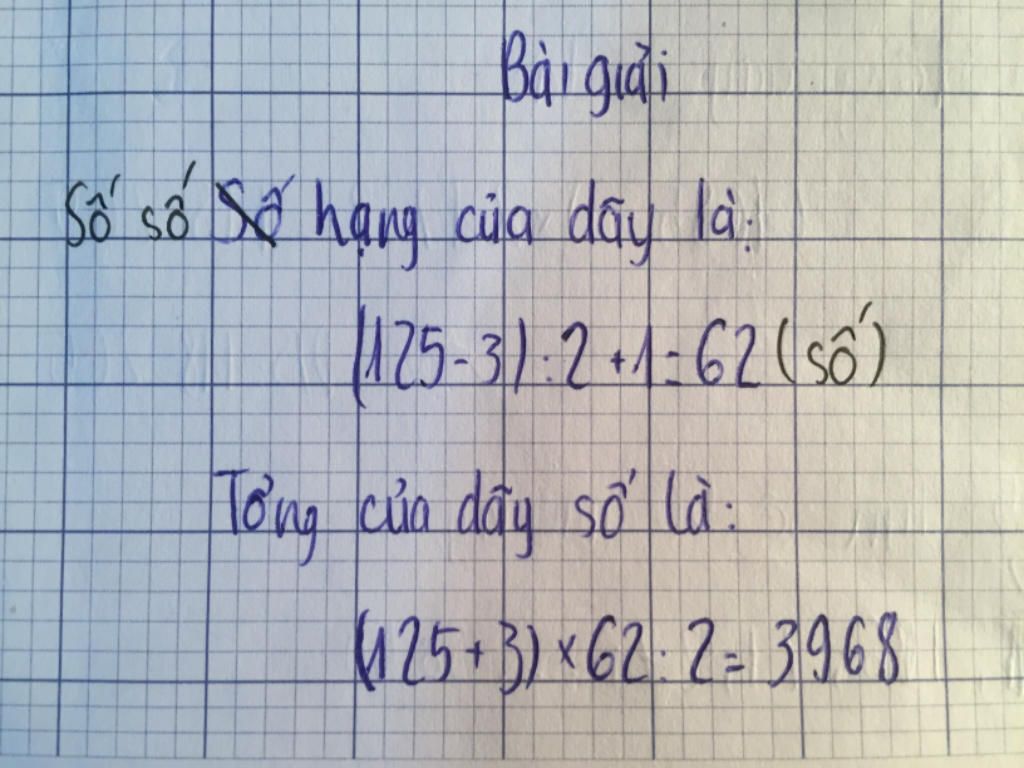 Bài giải
Số số hạng của dãy là:
(125-3):2+1=62(số)
Tổng của dãy số là:
(125+3)×62:2=3968